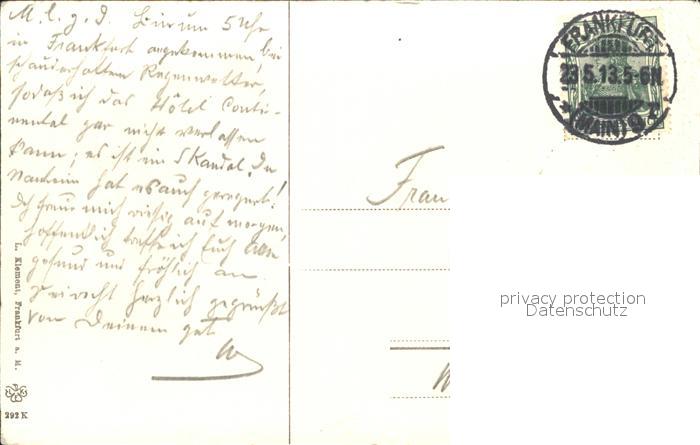 M. l. g. D. Bin um 5 Uhr
in Frankfurt angekommen, bei
schauderhaftem Regenwetter,
sodaß ich das Hôtel Conti-
nental gar nicht verlassen
kann; es ist ein Skandal. In
Nauheim hat es auch geregnet!
Ich freue mich riesig auf morgen,
hoffentlich treffe ich Euch alle
gesund und fröhlich an.
Sei recht herzlich gegrüßt
von Deinem
FRANKFURT
23.5.13.5-6N
(MAIN) 9
Frau
L. Klement, Frankfurt a. M.
292 K
privacy protection
Datenschutz